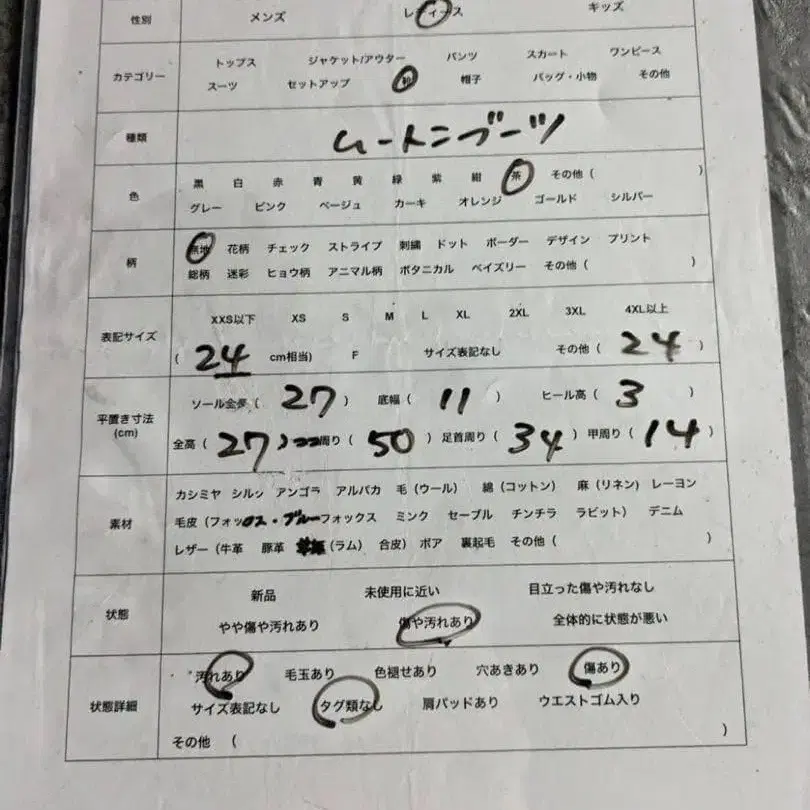 性別 メンズ レディース キッズ
カテゴリー
トップス ジャケット/アウター パンツ スカート ワンピース
スーツ セットアップ 帽子 バッグ・小物 その他
種類 ムートンブーツ
色
黒 白 赤 青 黄 緑 紫 紺 茶 その他 ( )
グレー ピンク ベージュ カーキ オレンジ ゴールド シルバー
柄
無地 花柄 チェック ストライプ 刺繍 ドット ボーダー デザイン プリント
総柄 迷彩 ヒョウ柄 アニマル柄 ボタニカル ペイズリー その他 ( )
表記サイズ
XXS以下 XS S M L XL 2XL 3XL 4XL以上
( 24 cm相当) F サイズ表記なし その他 ( 24 )
平置き寸法
(cm)
ソール全長 ( 27 ) 底幅 ( 11 ) ヒール高 ( 3 )
全高 ( 27 ) 周り ( 50 ) 足首周り ( 34 ) 甲周り ( 14 )
素材
カシミヤ シルク アンゴラ アルパカ 毛 (ウール) 綿 (コットン) 麻 (リネン) レーヨン
毛皮 (フォックス・ブルーフォックス ミンク セーブル チンチラ ラビット) デニム
レザー (牛革 豚革 (ラム) 合皮) ボア 裏起毛 その他 ( )
状態
新品 未使用に近い 目立った傷や汚れなし
やや傷や汚れあり 傷や汚れあり 全体的に状態が悪い
状態詳細
汚れあり 毛玉あり 色褪せあり 穴あきあり 傷あり
サイズ表記なし タグ類なし 肩パッドあり ウエストゴム入り
その他 ( )